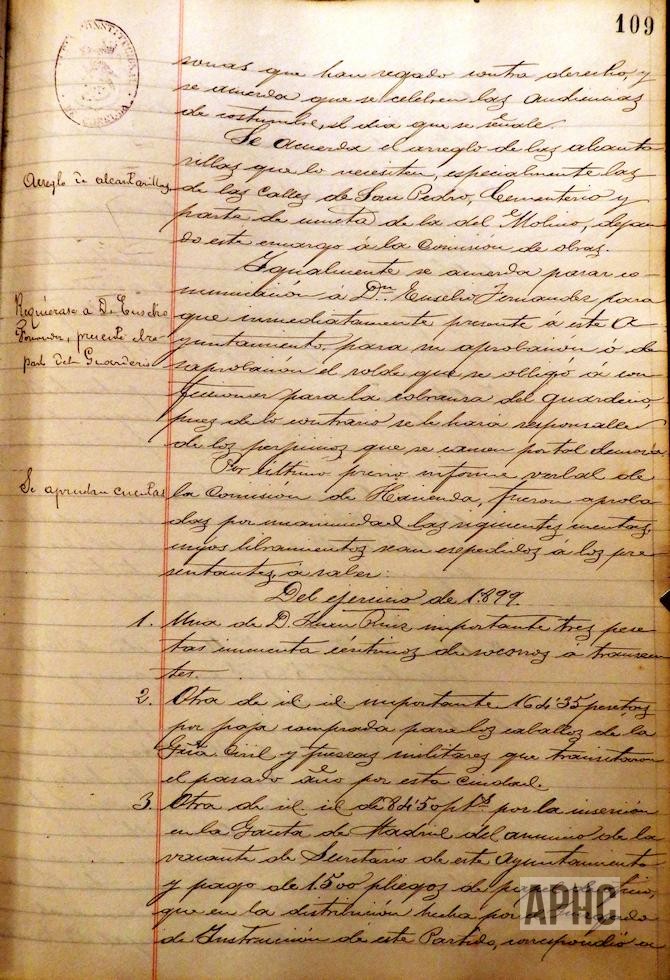 109
sonas que han regado contra derecho, y
se acuerda que se celebren las audiencias
de costumbre, el dia que se señale.
Se acuerda el arreglo de las alcanta
rillas que lo necesiten, especialmente las
Arreglo de alcantarillas
de las calles de San Pedro, Cementerio y
parte de cuneta de la del Molino, dejan
do este encargo á la Comisión de obras.
Igualmente se acuerda pasar co-
municación á Dn. Eusebio Fernandez para
Requierase á D. Eusebio
Fernandez, presente el re-
parto del Guarderio
que inmediatamente presente á este A-
yuntamiento para su aprobación ó de
saprobación el rolde que se obligó á con
feccionar para la cobranza del guarderio,
pues de lo contrario se le hará responsable
de los perjuicios que se causen por tal demora
Por último previo informe verbal de
Se aprueban cuentas
la Comisión de Hacienda, fueron aproba
das por unanimidad las siguientes cuentas,
cuyos libramientos sean expedidos á los pre
sentantes, á saber:
Del ejercicio de 1.899.
1. Una de D. Juan Ruiz importante tres pese
tas cincuenta céntimos de socorros á transeun
tes.
2. Otra de id. id. importante 164'35 pesetas
por paja comprada para los caballos de la
Gua. Civil y fuerzas militares que transitaron
el pasado año por esta ciudad.
3. Otra de id. id. de 84'50 pts. por la inserción
en la Gaceta de Madrid del anuncio de la
vacante de Secretario de este Ayuntamiento
y pago de 1.500 pliegos de
que en la distribución hecha por el Juzgado
de Instrucción de este Partido, correspondió á
APHC